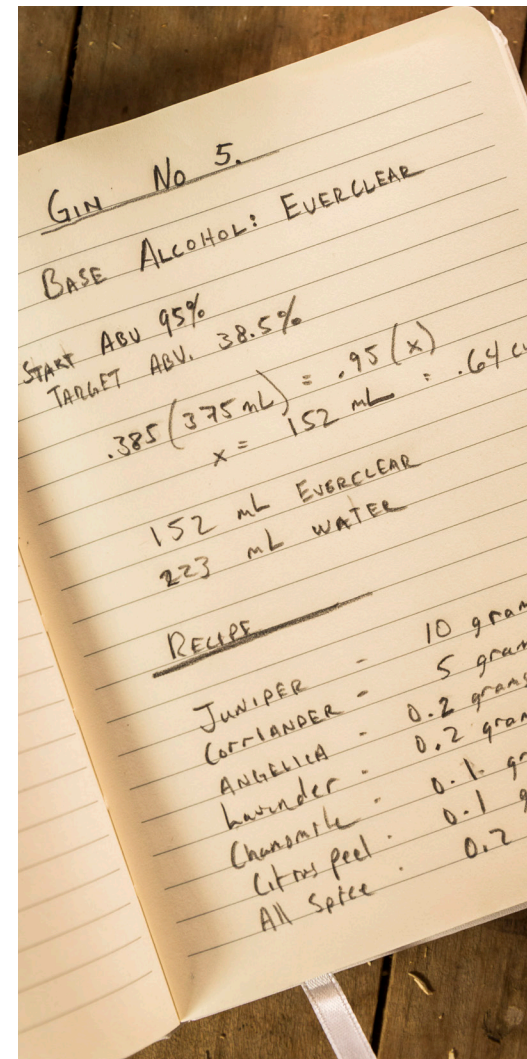 GIN No 5.
BASE ALCOHOL: EVERCLEAR
START ABV 95%
TARGET ABV. 38.5%
.385(375mL) = .95(x)
x = 152 mL = .64 c
152 mL EVERCLEAR
223 mL WATER
RECIPE
JUNIPER - 10 gram
CORRIANDER - 5 gram
ANGELICA - 0.2 grams
Lavender - 0.2 gram
Chamomile - 0.1 gr
Citrus peel - 0.1 g
All Spice - 0.2